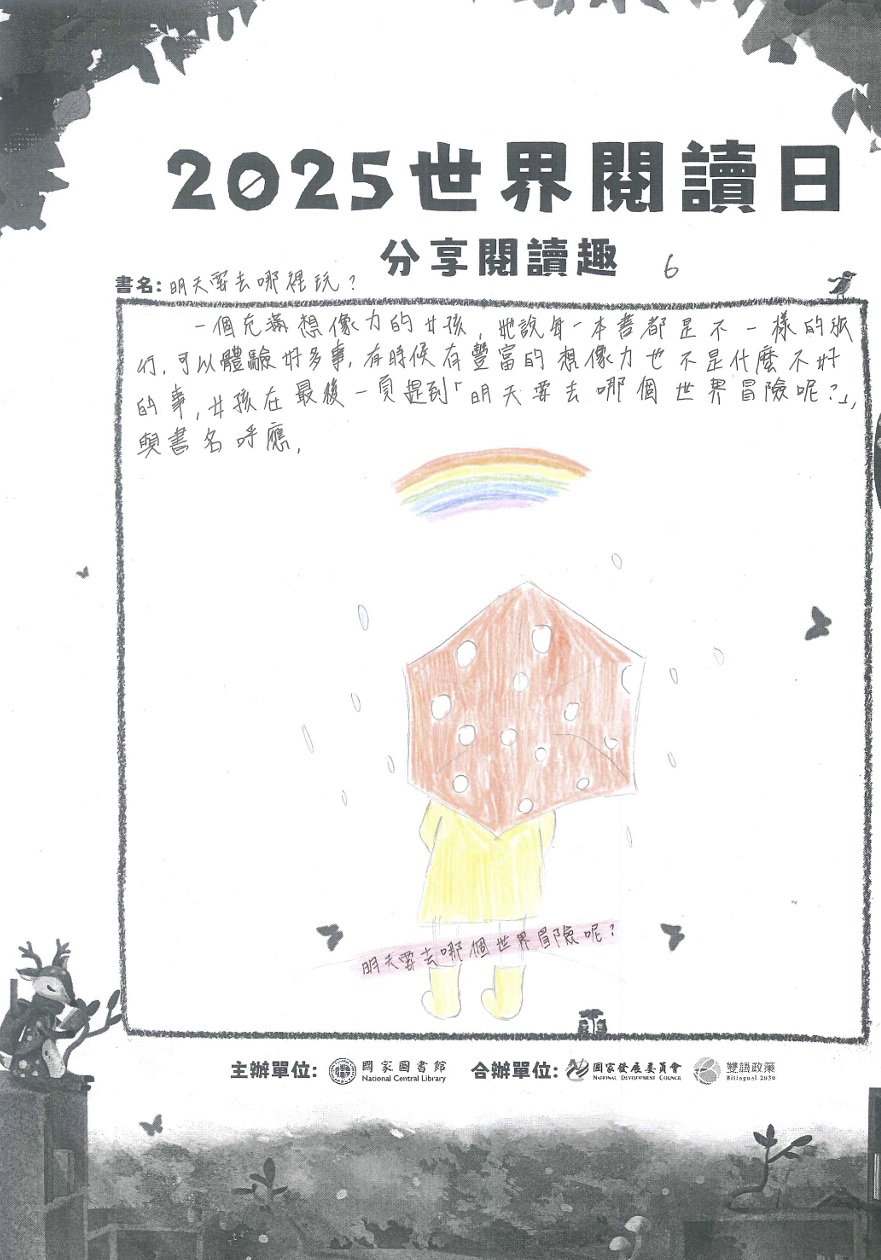 2025世界閱讀日
分享閱讀趣 6
書名: 明天要去哪裡玩?
一個充滿想像力的女孩,她說每一本書都是不一樣的旅
行,可以體驗好多事,有時候有豐富的想像力也不是什麼不好
的事,女孩在最後一頁提到「明天要去哪個世界冒險呢?」,
與書名呼應,
明天要去哪個世界冒險呢?
主辦單位: 國家圖書館 National Central Library 合辦單位: 國家發展委員會 National Development Council 雙語政策 Bilingual 2030